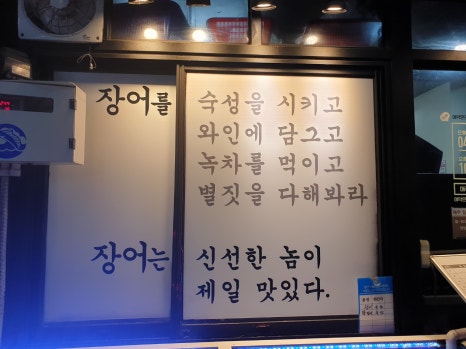 장어를 숙성을 시키고
와인에 담그고
녹차를 먹이고
별짓을 다해봐라
장어는 신선한 놈이
제일 맛있다.